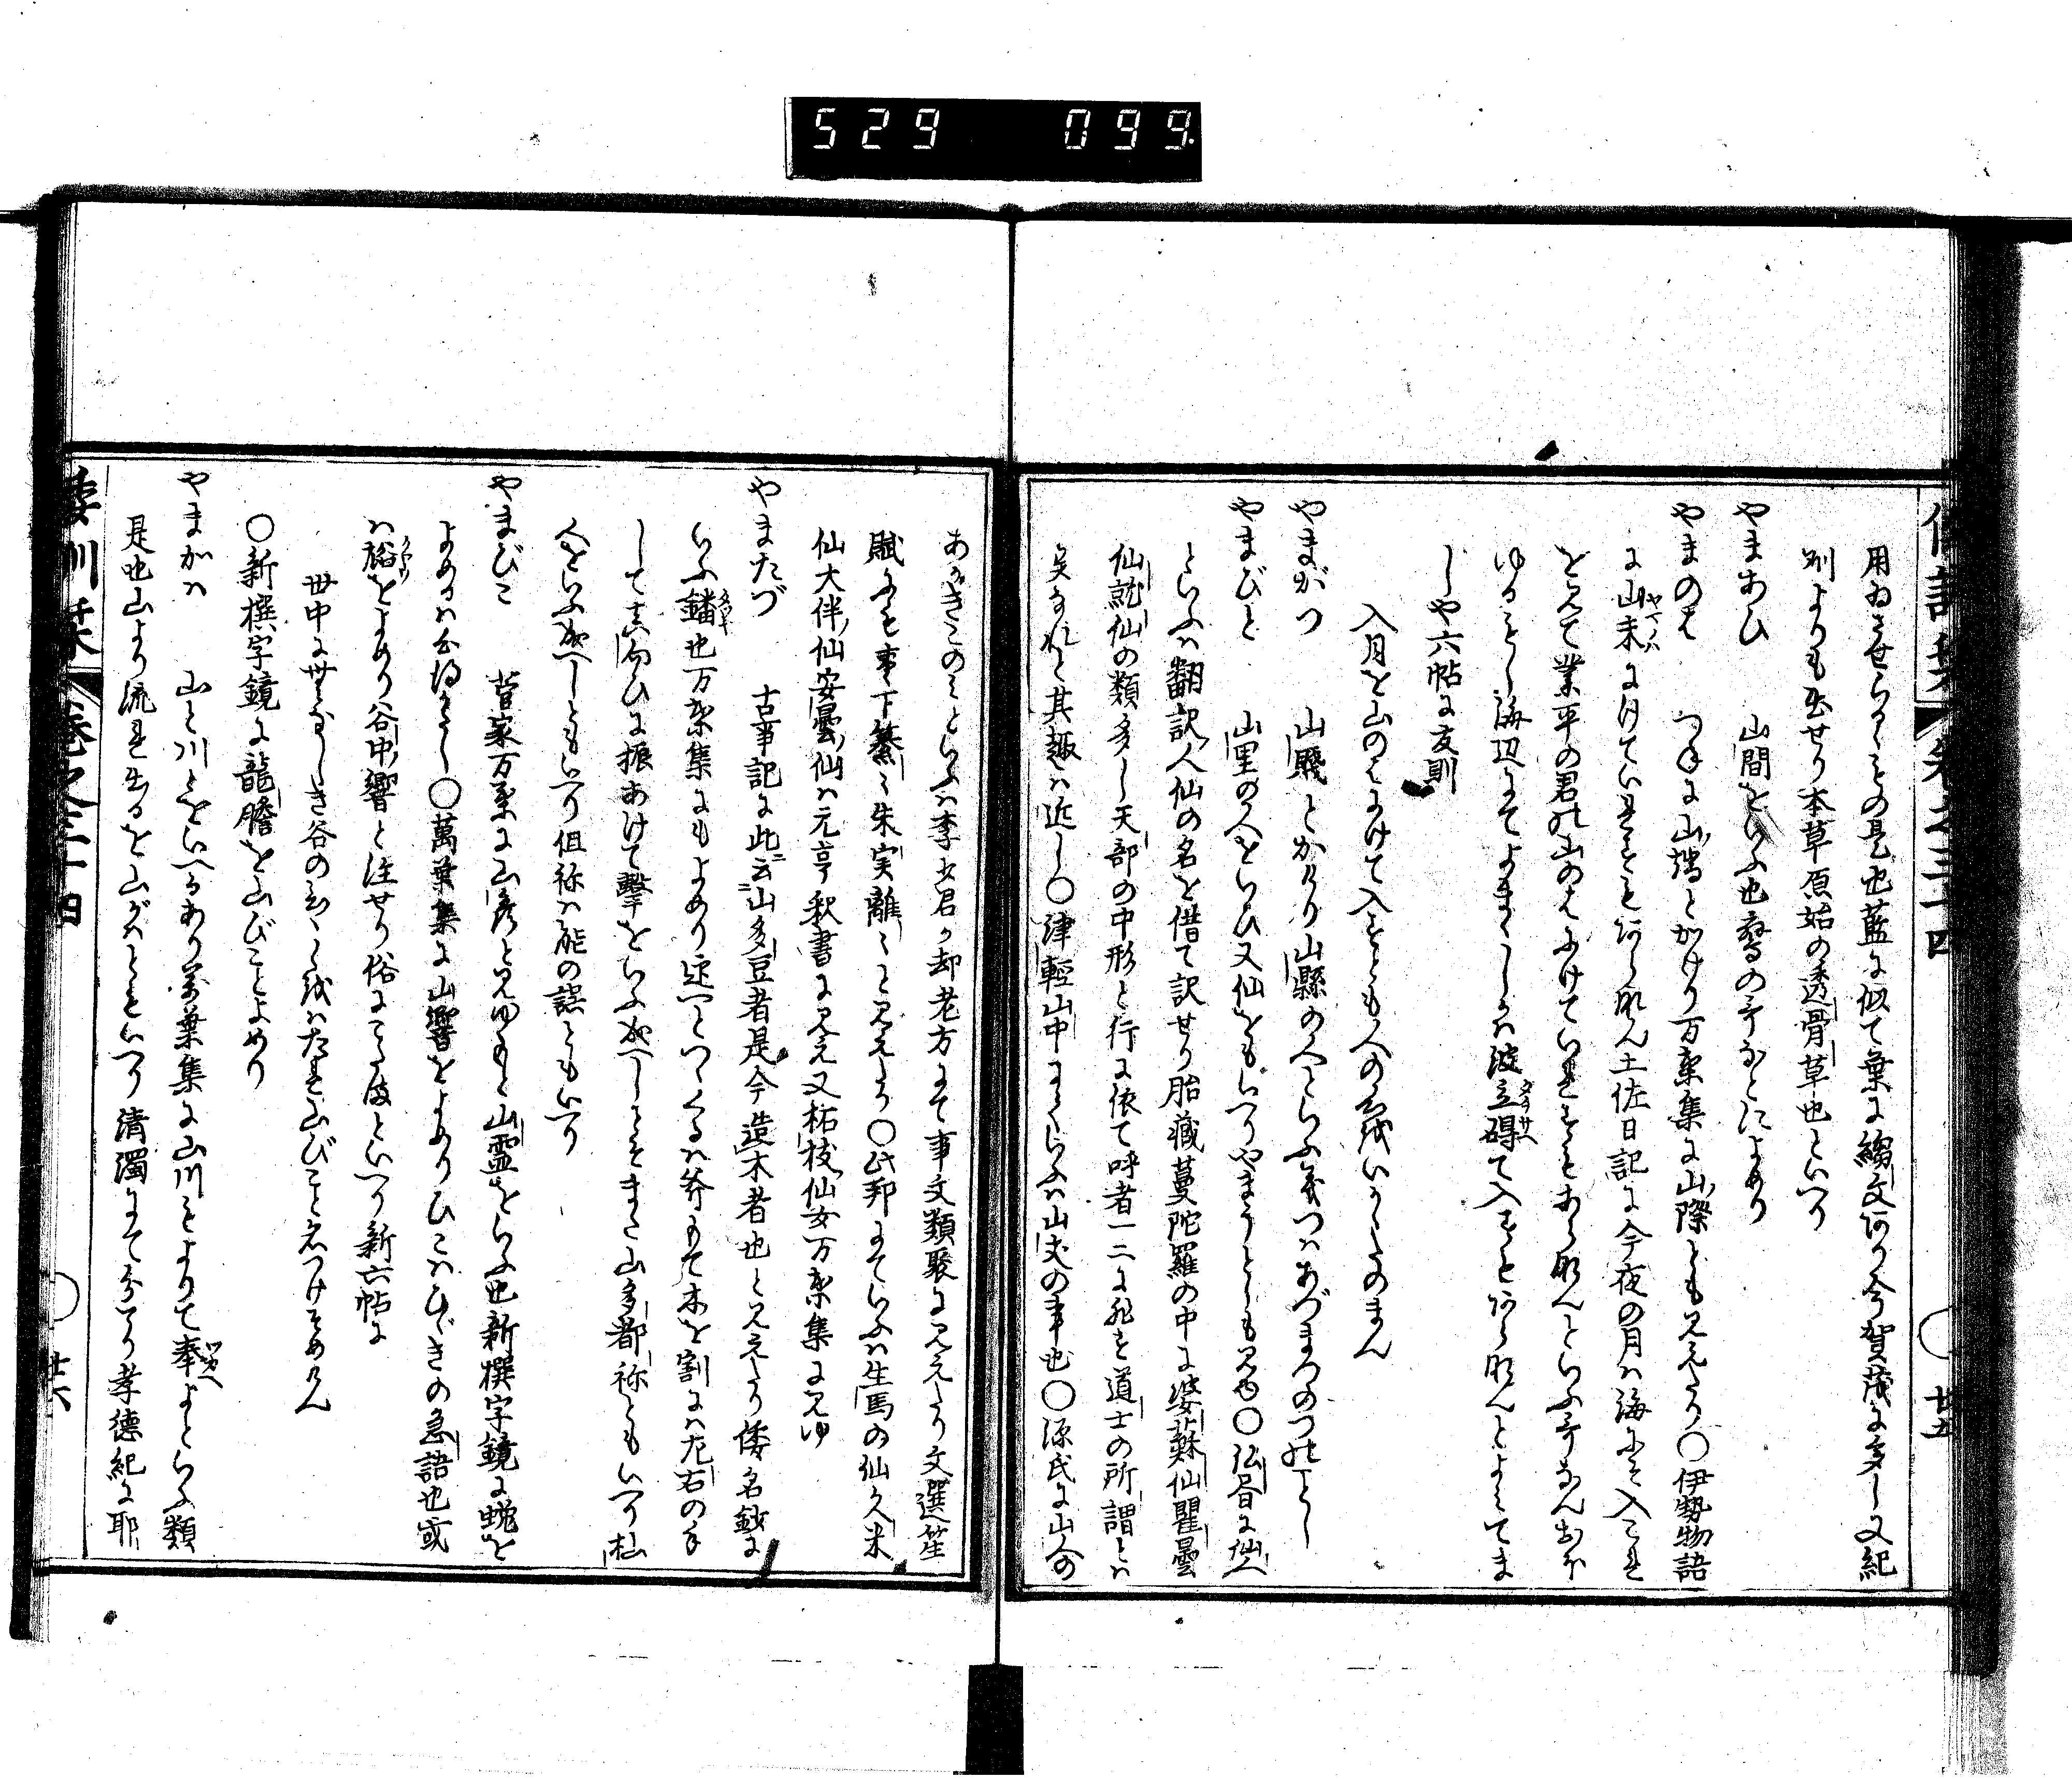 529 099
用ゐさせらるゝもの是也藍に似て葉に縐文あり今賀茂に多し又紀
州よりも出せり本草原始の透骨草也といへり
やまあひ 山間をいふ也鶯の哥などによめり
やまのは つねに山端とかけり万葉集に山際とも見えたり○伊勢物語
に山末にけていれすもあらなん土佐日記に今夜の月は海にそ入これ
をみて業平の君の山のはにけていれすもあらなんといふ哥なんおほ
ゆるもし海辺にてよまゝしかは波立碍て入すもあらなんとよみてま
しや六帖に友則
入月を山のはにけて入すとも人の
やまがつ 山賤とかけり山縣の人といふ義つはあづまつのつの
やまびと 山里の人をいひ又仙をもいへりやまうとゝも見ゆ○弘音に仙人
といふは翻訳人仙の名を借て訳せり胎藏蔓陀羅の中に婆蘇仙瞿曇
仙就仙の類多し天部の中形と行に依て呼者一二に非す道士の所謂とは
異なれと其趣は近し○津輕山中にていふは山丈の事也○源氏に山人の
あかきこのみといふは李少君か却老方にて事文類聚に見えたり文選笙
賦にも棗下纂々朱実離々と見えたり○此邦にていふは生馬の仙久米
仙大伴仙安曇仙は元亨釈書に見え又柘枝仙女万葉集に見ゆ
やまたづ 古事記に此云山多豆者是今造木者也と見えたり倭名鈔に
いふ鐇也万葉集にもよめり迎へとつゝくるは斧もて木を割には左右の手
して真向ひに振あけて撃をいふなへしもそまた山多都祢ともいへり杣
人をいふなへしともいへり但祢は能の誤ともいへり
やまびこ 菅家万葉に山彦と見ゆもと山霊をいふ也新撰字鏡に䖣を
よめるは○萬葉集に山響をよめりひこはひゞきの急語也或
は谺をよめり谷中響と注せり俗にこたまといへり新六帖に
世中に世をしき谷の山びこと名つけそめけん
○新撰字鏡に龍膽を山びことよめり
やまがは 山と川とをいへるあり萬葉集に山川もよりて奉よといふ類
是也山より流れ出るを山がはともいへり清濁にて分てり孝德紀に耶
倭訓栞 巻之三十四 廿五
倭訓栞 巻之三十四 廿六